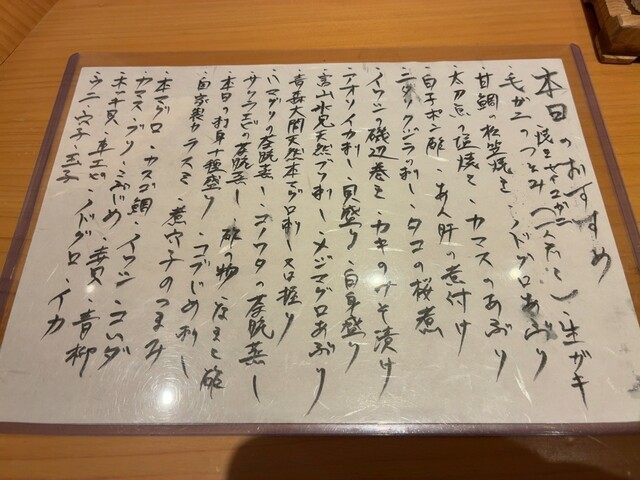 本日のおすすめ
焼きズワイガニ
毛ガニのつまみ(一人たし)・生ガキ
甘鯛の松笠焼き・ノドグロあぶり
太刀魚の塩焼き・カマスのあぶり
白子ポン酢・あん肝の煮付け
ニタリクジラの刺し・タコの桜煮
イワシの磯辺巻き・カキのみそ漬け
アオリイカ刺し・貝盛り・白身盛り
富山氷見天然ブリ刺し・メジマグロあぶり
青森大間天然本マグロ刺しor握り
ハマグリの茶碗蒸し・コノワタの茶碗蒸し
サクラエビの茶碗蒸し・酢の物・なまこ酢
本日の刺身十種盛り・コブじめ刺し
自家製カラスミ・煮穴子のつまみ
本マグロ・カスゴ鯛・イワシ・コハダ
カマス・ブリ・こぶじめ・青柳
ホッキ貝・車エビ・ノドグロ・イカ
ウニ・穴子・玉子